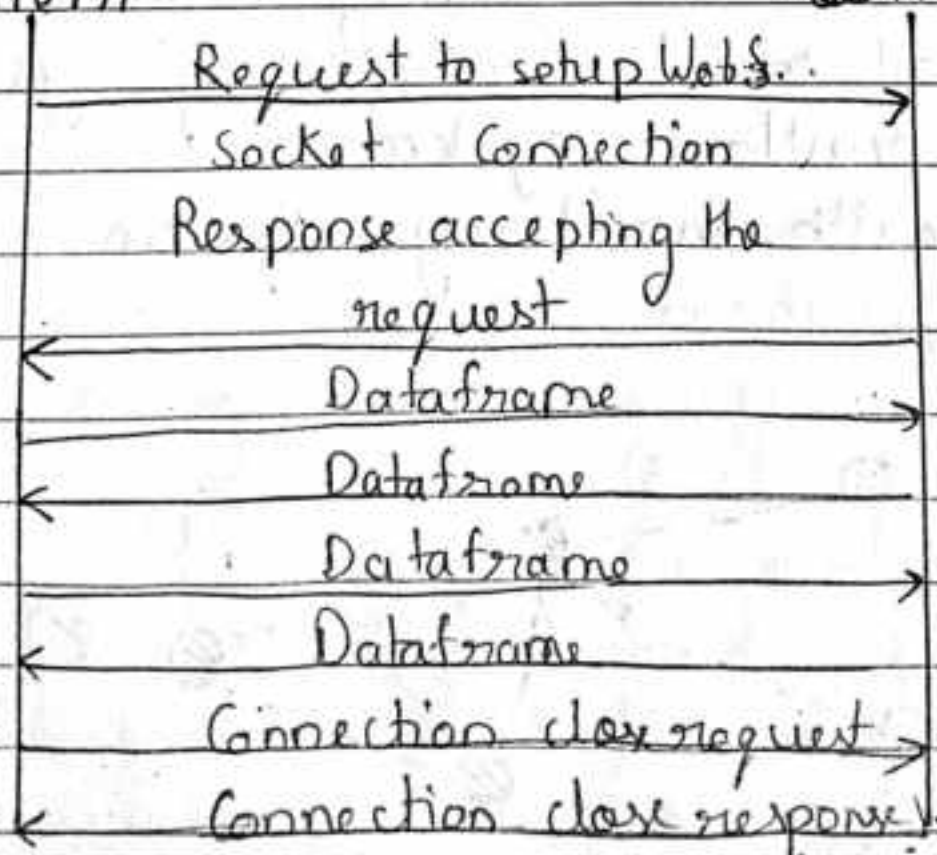 Request to setup Web
Socket Connection
Response accepting the
request
Dataframe
Dataframe
Dataframe
Dataframe
Connection close request
Connection close response